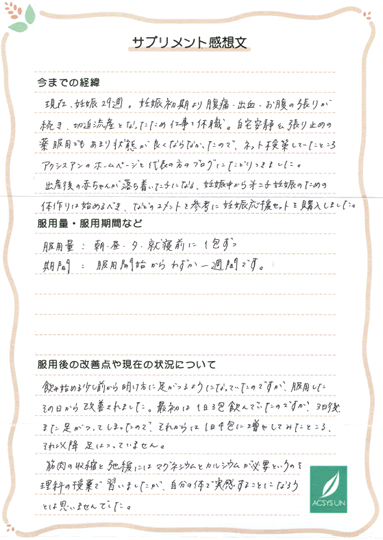 サプリメント感想文
今までの経緯
現在、妊娠29週。妊娠初期より腹痛・出血・お腹の張りが
続き、切迫流産となったため仕事を休職。自宅安静と張り止めの
薬服用でもあまり状態が良くならなかったので、ネット検索していたところ
アクシスアンのホームページと代表の方のブログにたどりつきました。
出産後の赤ちゃんが落ち着いた子になる、妊娠中から第二子妊娠のための
体作りは始めるべき、などのコメントを参考に妊娠応援セットを購入しました。
服用量・服用期間など
服用量：朝・昼・夕・就寝前に1包ずつ
期間：服用開始からわずか一週間です。
服用後の改善点や現在の状況について
飲み始める少し前から明け方に足がつるようになっていたのですが、服用した
その日から改善されました。最初は1日3包飲んでいたのですが、3日後
また足がつってしまったので、それからは1日4包に増やしてみたところ、
それ以降足はつっていません。
筋肉の収縮と弛緩にはマグネシウムとカルシウムが必要というのを
理科の授業で習いましたが、自分の体で実感することになろう
とは思いませんでした。
ACSYS UN